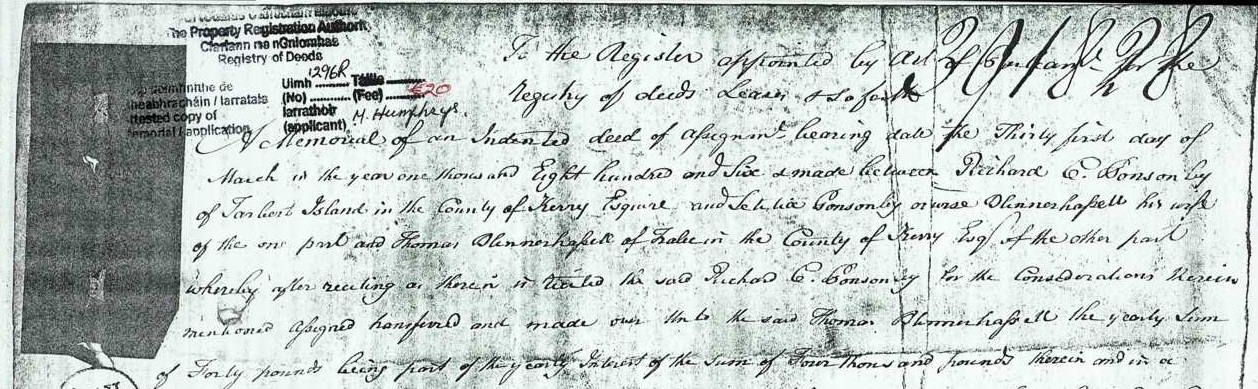 The Property Registration Authority
Clárlann na nGníomhas
Registry of Deeds
Uimh 1296R Táille
(No) (Fee) €20
Iarrathóir
(applicant) M. Humphrys.
meabhracháin / iarratais
attested copy of
memorial / application
To the Register appointed by Act of Parliamt for the
Registry of deeds Leases & so forth
391828
A Memorial of an Indented deed of assignmt bearing date the Thirty first day of
March in the year one thousand Eight hundred and Six & made between Richard C. Ponsonby
of Tarbert Island in the County of Kerry Esquire and Letitia Ponsonby orwise Blennerhassett his wife
of the one part and Thomas Blennerhassett of Tralee in the County of Kerry Esqr of the other part
whereby after reciting as therein is recited the said Richard C. Ponsonby for the Considerations therein
mentioned assigned transferred and made over unto the said Thomas Blennerhassett the yearly Sum
of Forty pounds being part of the yearly Interest of the sum of Four thousand pounds therein and in a